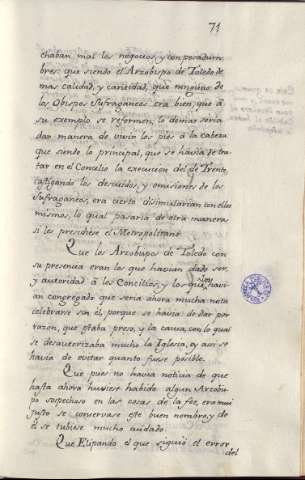 71
chaban mal los negocios, y con pesadum-
bres: que siendo el Arzobispo de Toledo de
mas calidad, y cantidad, que ninguno de
los Obispos Sufraganeos era bien, que â
su exemplo se reformen, lo demas seria
dar manera de vivir los pies â la cabeza
que siendo lo principal, que se havia de tra-
tar en el Concilio la execucion del de Trento,
castigando los descuidos, y omisiones de los
Sufraganeos, era cierto disimularian con ellos
mismos, lo qual pasaria de otra manera
si les presidiese el Metropolitano.
Que los Arzobispos de Toledo con
su presencia eran los que havian dado ser,
y autoridad â los Concilios, y los que havi-
an congregado que seria ahora mucha nota
celebrarse sin él, porque se havia de dar por
razon, que estaba preso, y la causa, con lo qual
se desautorizaba mucho la Iglesia, y asi se
havia de evitar quanto fuese posible.
Que pues no havia noticia de que
hasta ahora huviese habido algun Arzobis-
po sospechoso en las cosas de la fée, era mui
justo se conservase este buen nombre, y de
él se tubiese mucho cuidado.
Que Elipando el que siguió el error
del